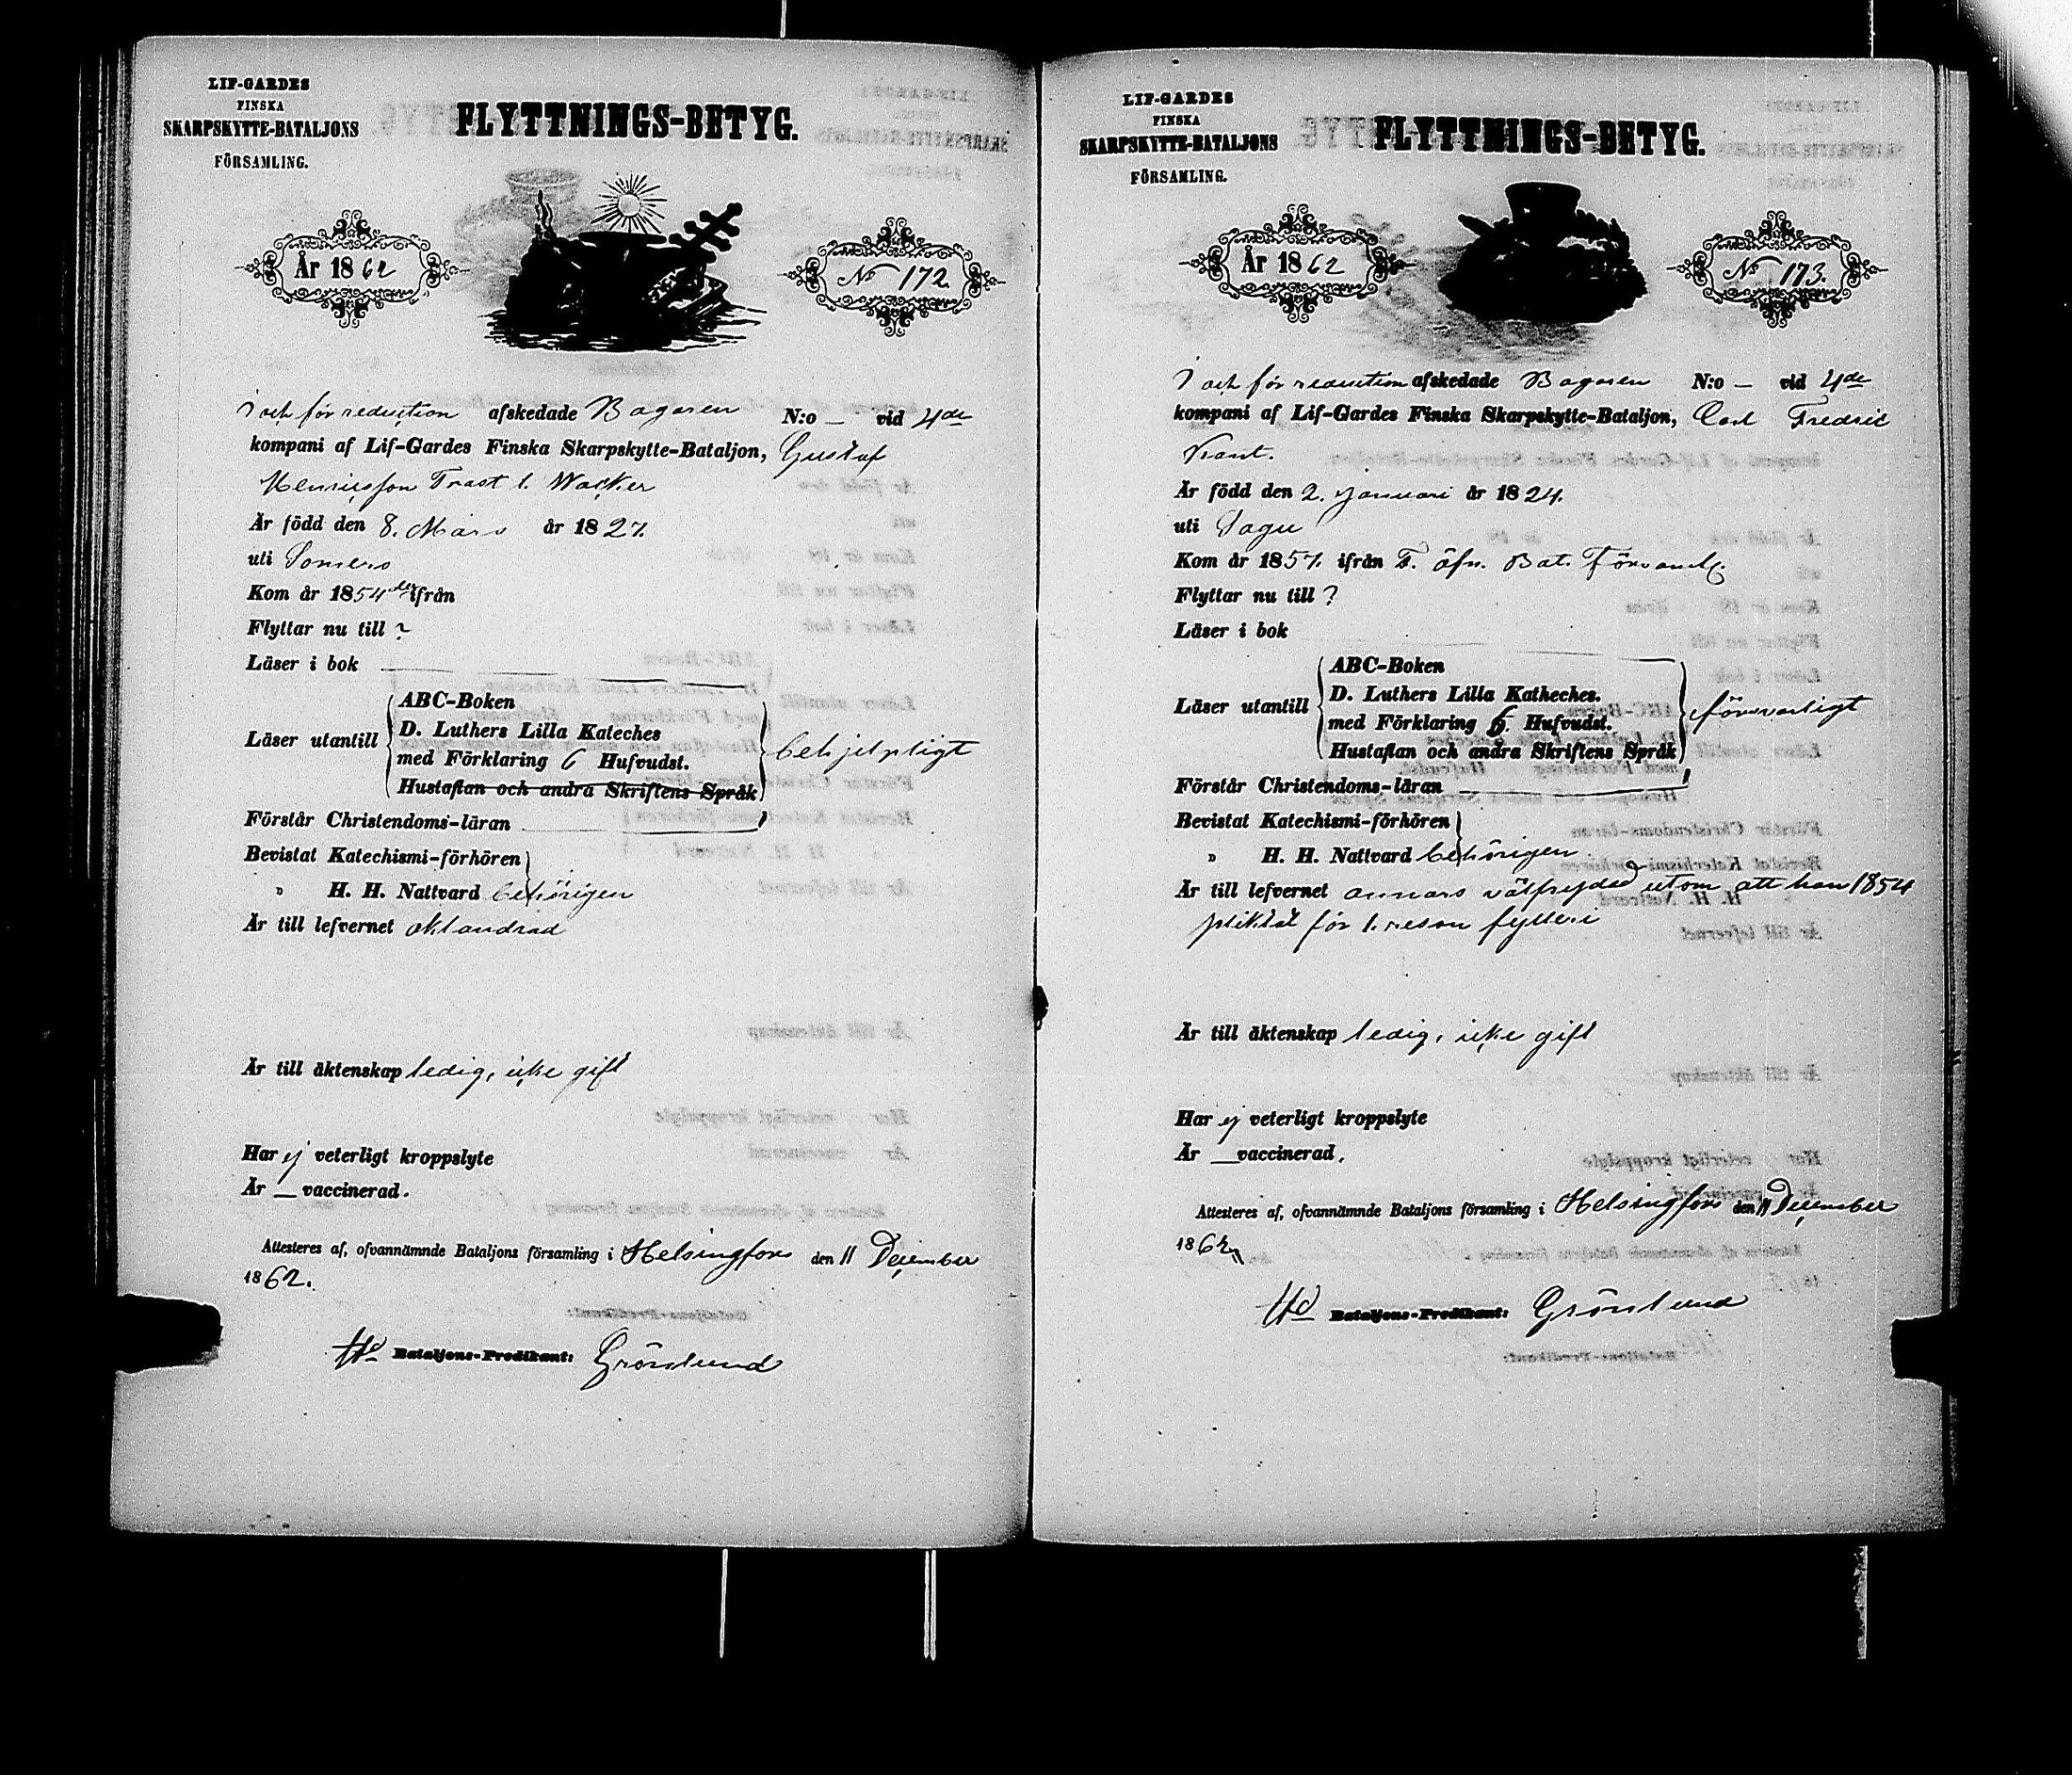 LIF-GARDES
FINSKA
SKARPSKYTTE-BATALJONS
FÖRSAMLING.
FLYTTNINGS-BETYG.
År 1862
No 172.
I och för reduction afskedade Bagaren N:o — vid 4de
kompani af Lif-Gardes Finska Skarpskytte-Bataljon, Gustaf
Henricsson Trast l. Wacker
Är född den 8. Mars år 1827.
uti Somero
Kom år 1854 ifrån
Flyttar nu till ?
Läser i bok
Läser utantill
ABC-Boken
D. Luthers Lilla Kateches
med Förklaring 6 Hufvudst.
Hustaflan och andra Skriftens Språk
behjelpligt
Förstår Christendoms-läran
Bevistat Katechismi-förhören
" H. H. Nattvard behörigen
Är till lefvernet oklandrad
Är till äktenskap ledig, icke gift
Har ej veterligt kroppslyte
Är — vaccinerad.
Attesteres af, ofvannämnde Bataljons församling i Helsingfors den 11 December
1862.
Bataljons-Predikant: Grönlund
LIF-GARDES
FINSKA
SKARPSKYTTE-BATALJONS
FÖRSAMLING.
FLYTTNINGS-BETYG.
År 1862
No 173.
I och för reduction afskedade Bagaren N:o — vid 4de
kompani af Lif-Gardes Finska Skarpskytte-Bataljon, Carl Fredric
Är född den 2. Januari år 1824.
uti Sagu
Kom år 1857. ifrån F. öfn. Bat. Församlg.
Flyttar nu till ?
Läser i bok
Läser utantill
ABC-Boken
D. Luthers Lilla Katheches.
med Förklaring 6. Hufvudst.
Hustaflan och andra Skriftens Språk
försvarligt
Förstår Christendoms-läran
Bevistat Katechismi-förhören
" H. H. Nattvard behörigen
Är till lefvernet annars välfrejdad utom att han 1854
pliktat för 1. resan fylleri
Är till äktenskap ledig, icke gift
Har ej veterligt kroppslyte
Är — vaccinerad.
Attesteres af, ofvannämnde Bataljons församling i Helsingfors den 11 December
1862
Bataljons-Predikant: Grönlund